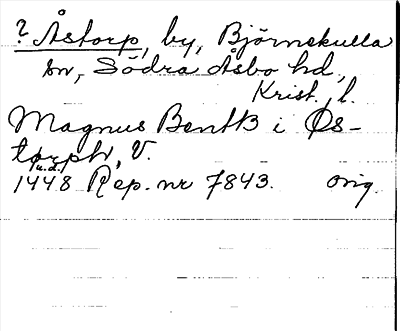 ? Åstorp, by, Björnekulla
sn, Södra Åsbo hd,
Krist. l.
Magnus Bentß i Øs-
torph, V.
(u.d.)
1448 Rep. nr 7843. orig.